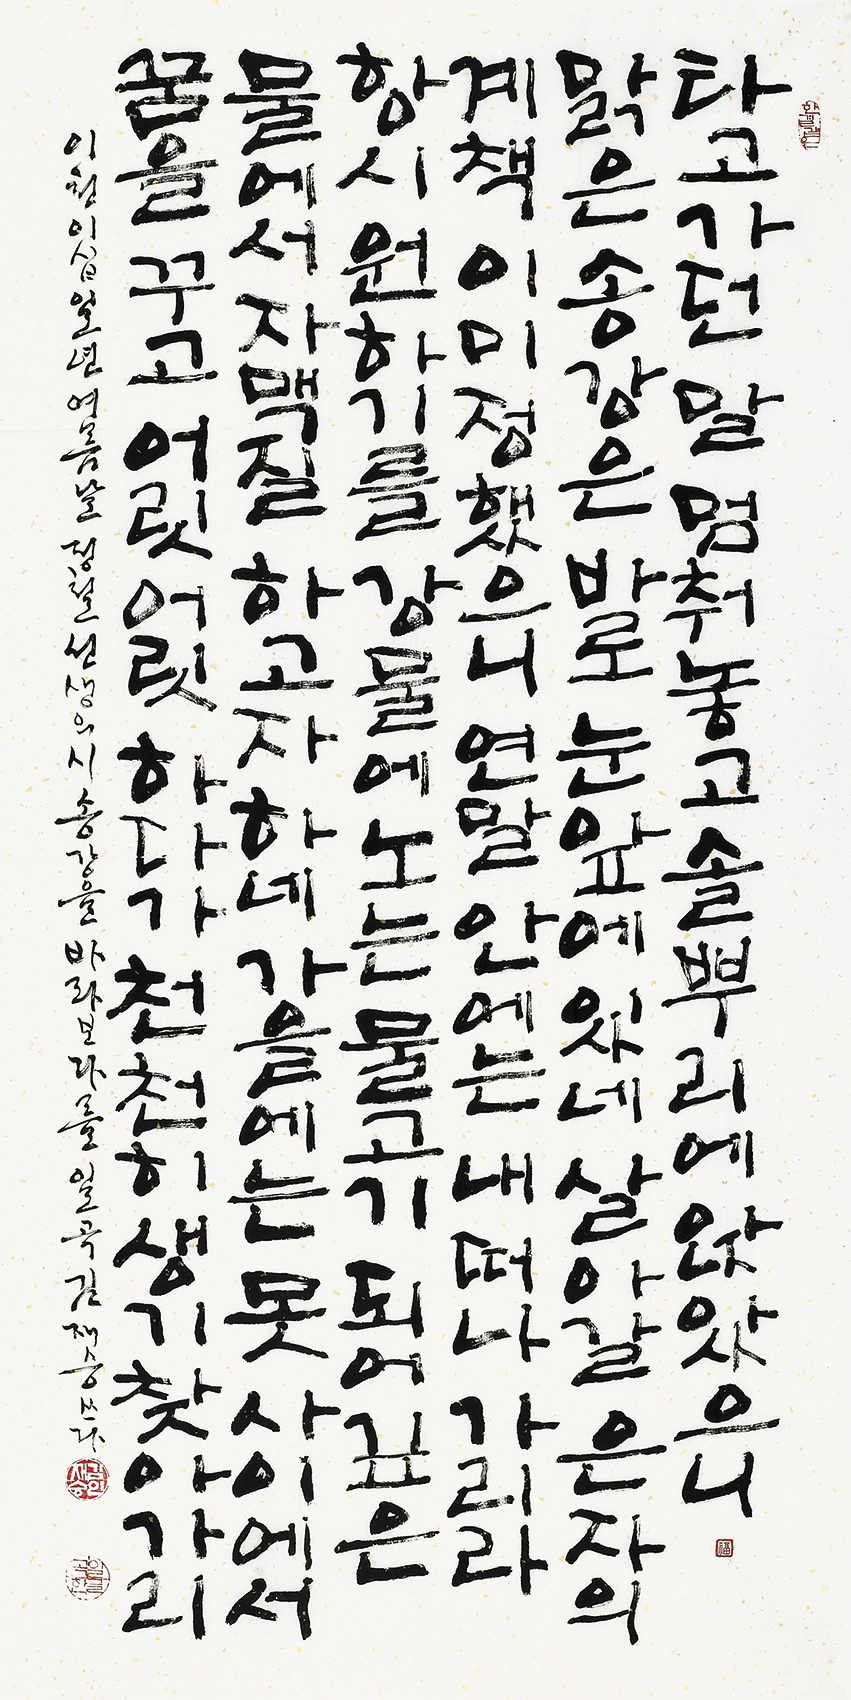 타고가던 말 멈춰놓고 솔뿌리에 앉았으니
맑은 송강은 바로 눈앞에 있네 살아갈 은자의
계책 이미 정했으니 연말 안에는 내 떠나가리라
항시 원하기를 강물에 노는 물고기 되어 깊은
물에서 자맥질 하고자 하네 가을에는 못 사이에서
꿈을 꾸고 어릿어릿 하다가 천천히 생기 찾아 가리
이천이십일년 여름날 정철선생의 시 송강을 바라보다를 월곡 김재승 쓰다
福